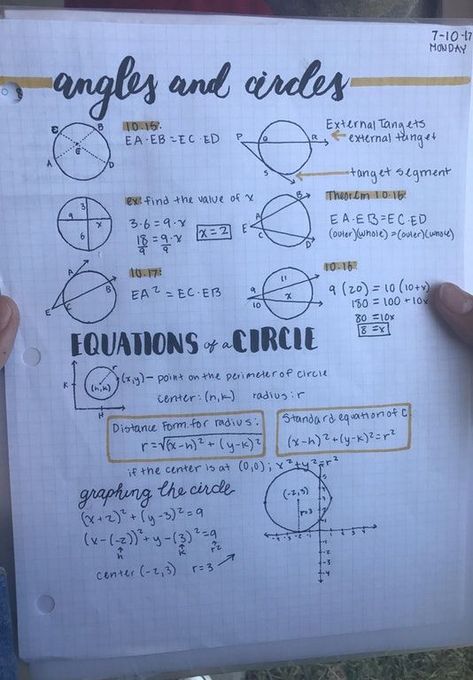 7-10-17
MONDAY
angles and circles
10.15:
EA·EB=EC·ED
E
B
C
A
D
P
Q
R
S
External Tangets
external tanget
tangent segment
ex: find the value of x
3·6=9·x
18=9·x
9 9
x=2
3
9
x
6
Theorem 10.16
EA·EB=EC·ED
(outer)(whole)=(outer)(whole)
A
B
E
C
D
10.17:
EA²=EC·EB
A
B
C
E
10.16
9(20)=10(10+x)
180=100+10x
80=10x
8=x
11
9
x
10
EQUATIONS of a CIRCLE
r
(h,k)
K
H
(x,y)— point on the perimeter of circle
center:(h,k) radius:r
Distance Form. for radius:
r=√(x-h)²+(y-k)²
Standard equation of C.
(x-h)²+(y-k)²=r²
if the center is at (0,0); x²+y²=r²
graphing the circle
(x+2)²+(y-3)²=9
(x-(-2))²+y-(3)²=9
h k r²
center (-2,3) r=3
(-2,3)
r=3